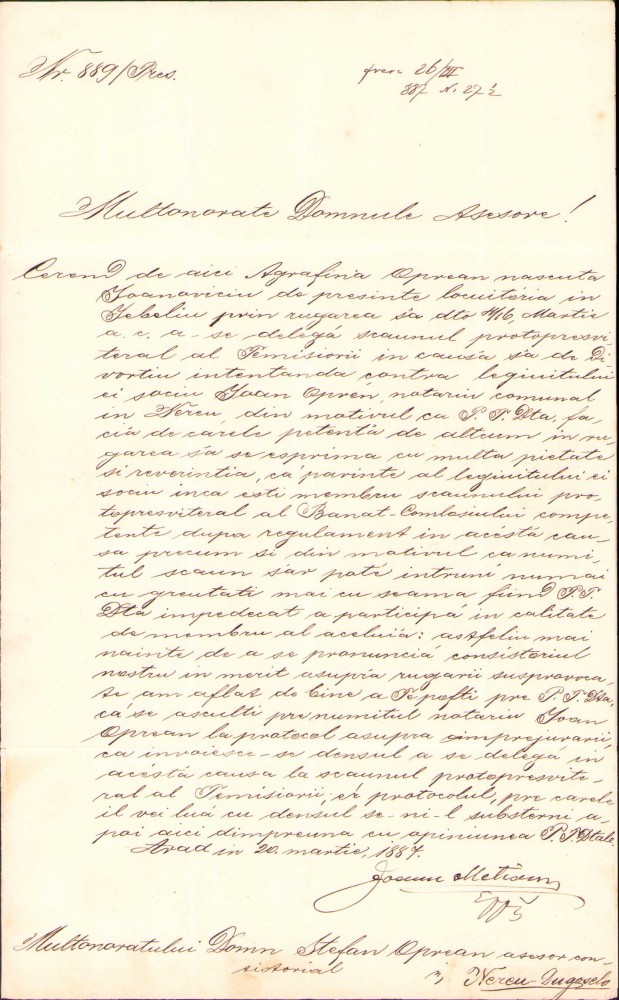 Nr. 889/Pres.
26/III
887 N. 27 1/2
Multonorate Domnule Asesore!
Cerend de aici Agrafina Oprean nascuta
Joanoviciu de presinte locuitória in
Jebeliu prin rugarea s'a dto 4/16, Martie
a. c. a-se delegá scaunul protopresvi-
teral al Temisiorii in causa s'a de Di-
vortiu intentanda contra legiuitului
ei sociu Joan Oprén, notariu comunal
in Nereu, din motivul ca P. T. Dta, fa-
ciá de carele petenta de altcum in ru-
garea s'a se esprima cu multa pietate
si reverintia, ca parinte al legiuitului ei
sociu inca esti membru scaunului pro-
topresviteral al Banat-Comlosiului compe-
tente dupa regulament in acésta cau-
sa precum si din motivul ca numi-
tul scaun s'ar poté intruni numai
cu greutate mai cu seama fiind P. T.
Dta impedecat a participá in calitate
de membru al aceluia: astfeliu mai
nainte de a se pronunciá consistoriul
nostru in merit asupra rugarii susprovoca-
te am aflat de bine a Te pofti pre P. T. Dta,
ca se asculti pre numitul notariu Joan
Oprean la protocol asupra impregiurarii,
ca invoiesce-se densul a se delegá in
acésta causa la scaunul protopresvite-
ral al Temisiorii, ér protocolul, pre carele
il vei lua cu densul se-ni-l substerni a-
poi aici dimpreuna cu opiniunea P. T. Dtale.
Arad in 20. martie, 1887.
Joanu Metianu
Multonoratului Domn Stefan Oprean asesor con-
sistorial
in, Nereu-Dugoselo